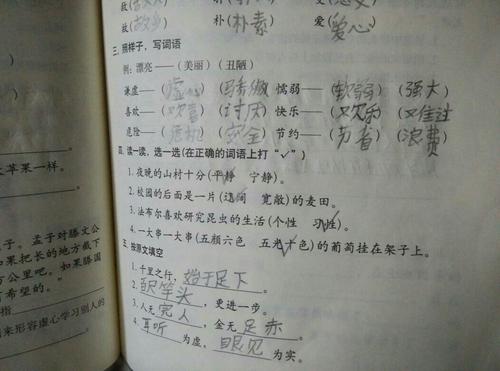 故(故乡) 朴(朴素) 爱(爱心)
三. 照样子，写词语
例：漂亮——(美丽)(丑陋)
谦虚——(虚心)(骄傲) 懦弱——(软弱)(强大)
喜欢——( )(讨厌) 快乐——(欢乐)( )
危险——(危机)(安全) 节约——(节省)(浪费)
四. 读一读，选一选(在正确的词语上打“√”)
1. 夜晚的山村十分(平静 宁静)。
2. 校园的后面是一片(辽阔 宽敞)的麦田。
3. 法布尔喜欢研究昆虫的生活(个性 习性)。
4. 一大串一大串(五颜六色 五光十色)的葡萄挂在架子上。
五. 按原文填空
1. 千里之行，始于足下。
2. 尺竿头，更进一步。
3. 人无完人，金无足赤。
4. 耳听为虚，眼见为实。
苹果一样。
子。孟子对滕文公
如果把长的地方截下
方公里吧。如果滕国
希望的。”
指
来形容虚心学习别人的